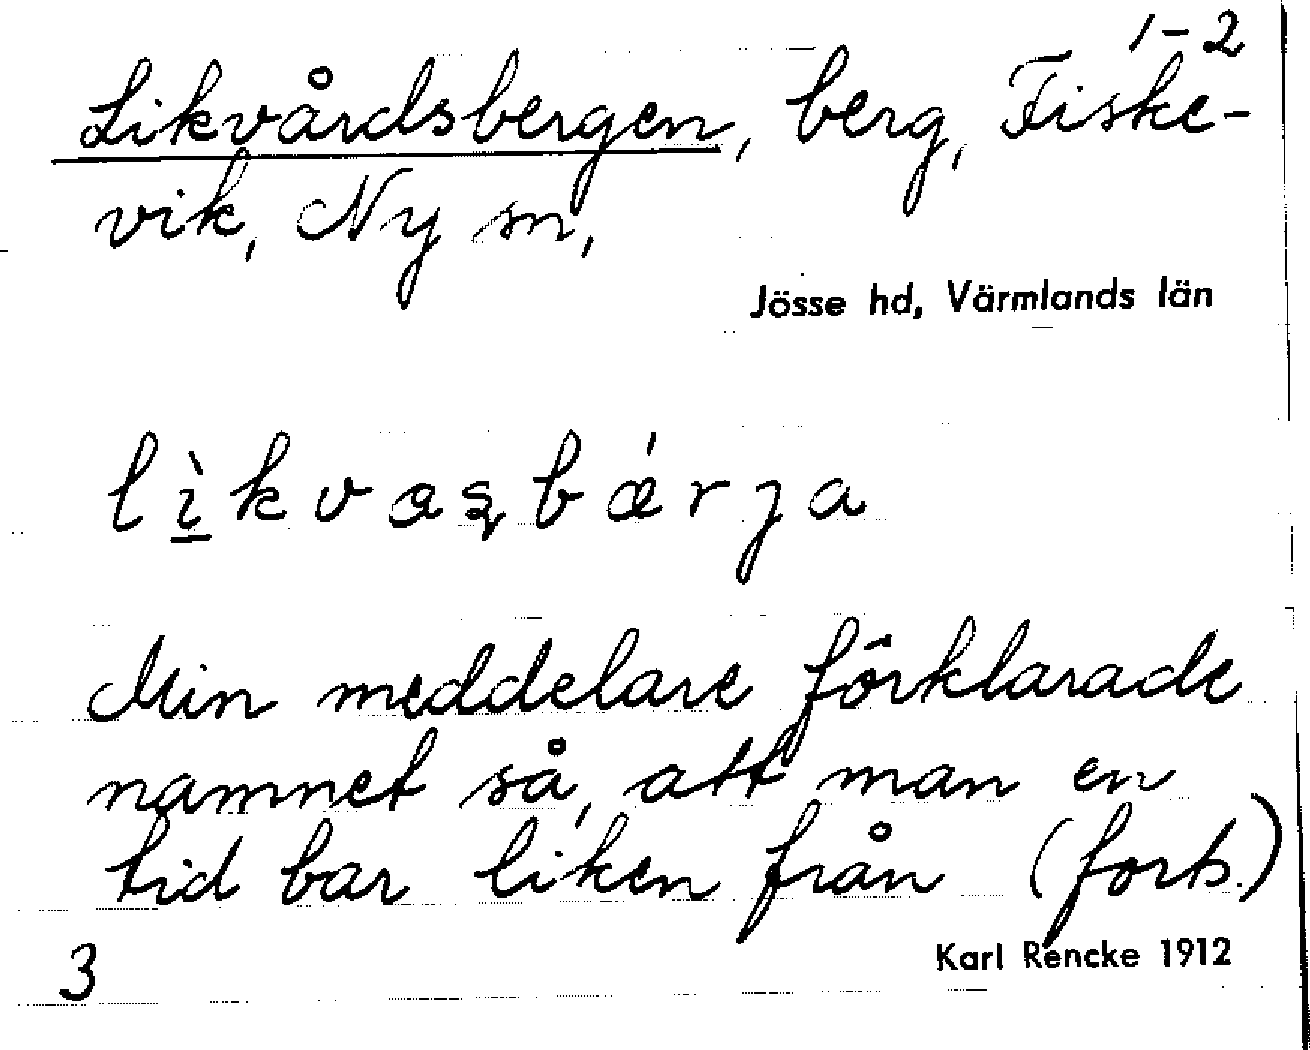 1-2
Likvårdsbergen, berg, Fiske-
vik, Ny sn,
Jösse hd, Värmlands län
Min meddelare förklarade
namnet så, att man en
tid bar liken från (forts.)
3
Karl Rencke 1912